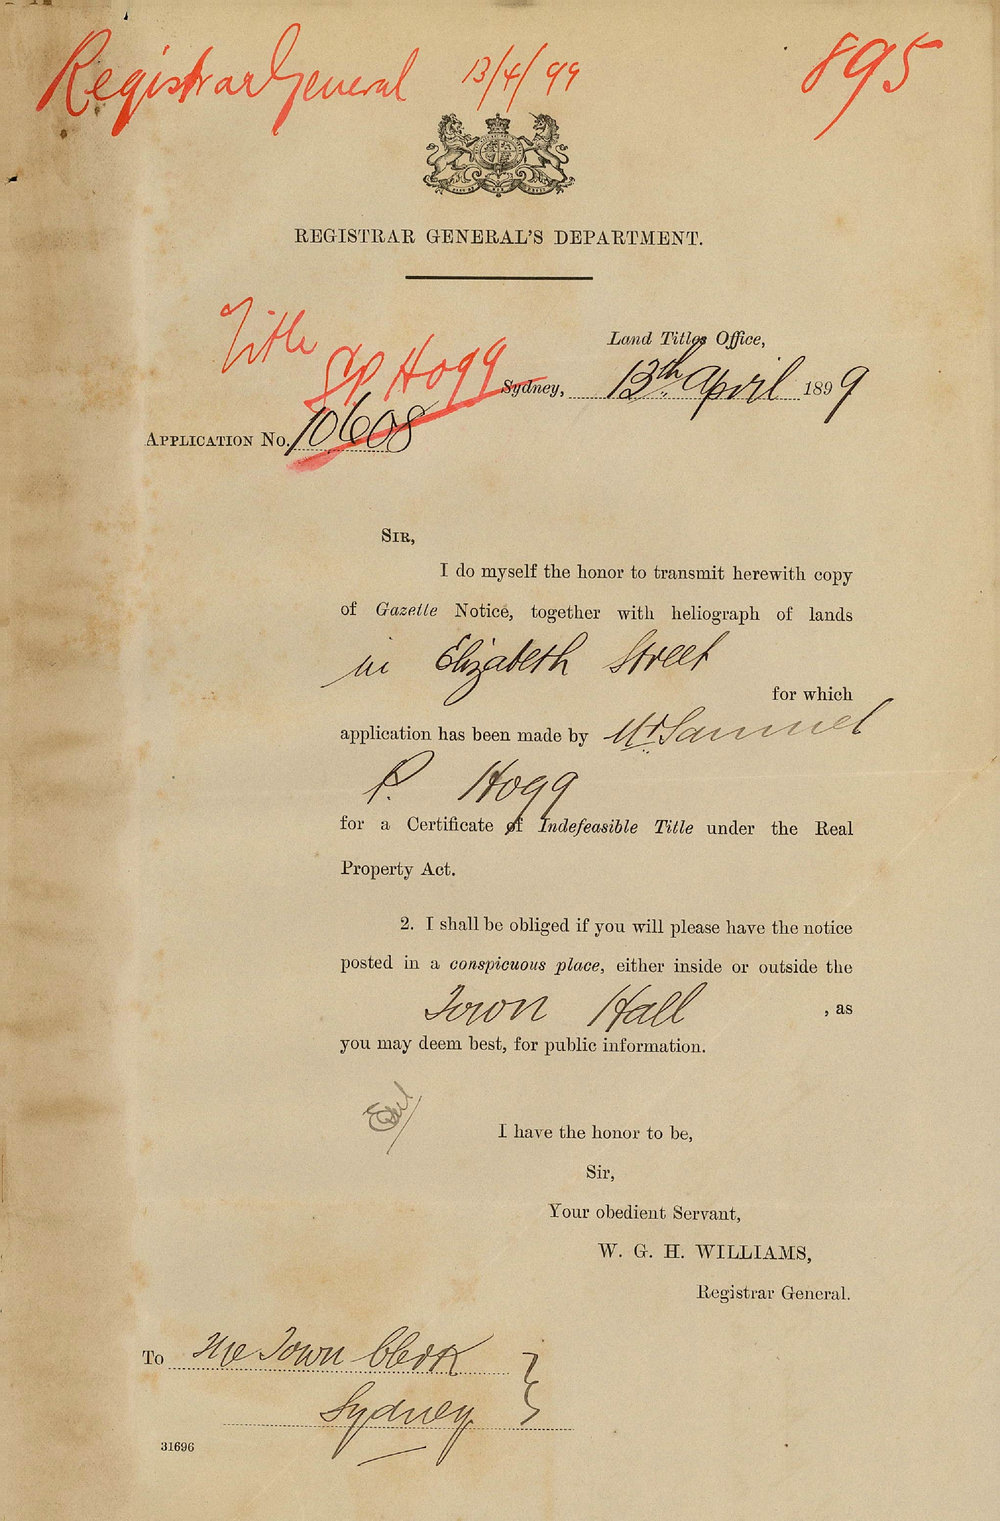 Registrar General 13/4/99 895
REGISTRAR GENERAL'S DEPARTMENT.
Title
S P Hogg
Land Titles Office,
Sydney, 13th April 1899
APPLICATION No. 10608
SIR,
I do myself the honor to transmit herewith copy
of Gazette Notice, together with heliograph of lands
in Elizabeth Street
for which
application has been made by Mr. Samuel
P. Hogg
for a Certificate of Indefeasible Title under the Real
Property Act.
2. I shall be obliged if you will please have the notice
posted in a conspicuous place, either inside or outside the
Town Hall , as
you may deem best, for public information.
I have the honor to be,
Sir,
Your obedient Servant,
W. G. H. WILLIAMS,
Registrar General.
To The Town Clerk
Sydney
31696